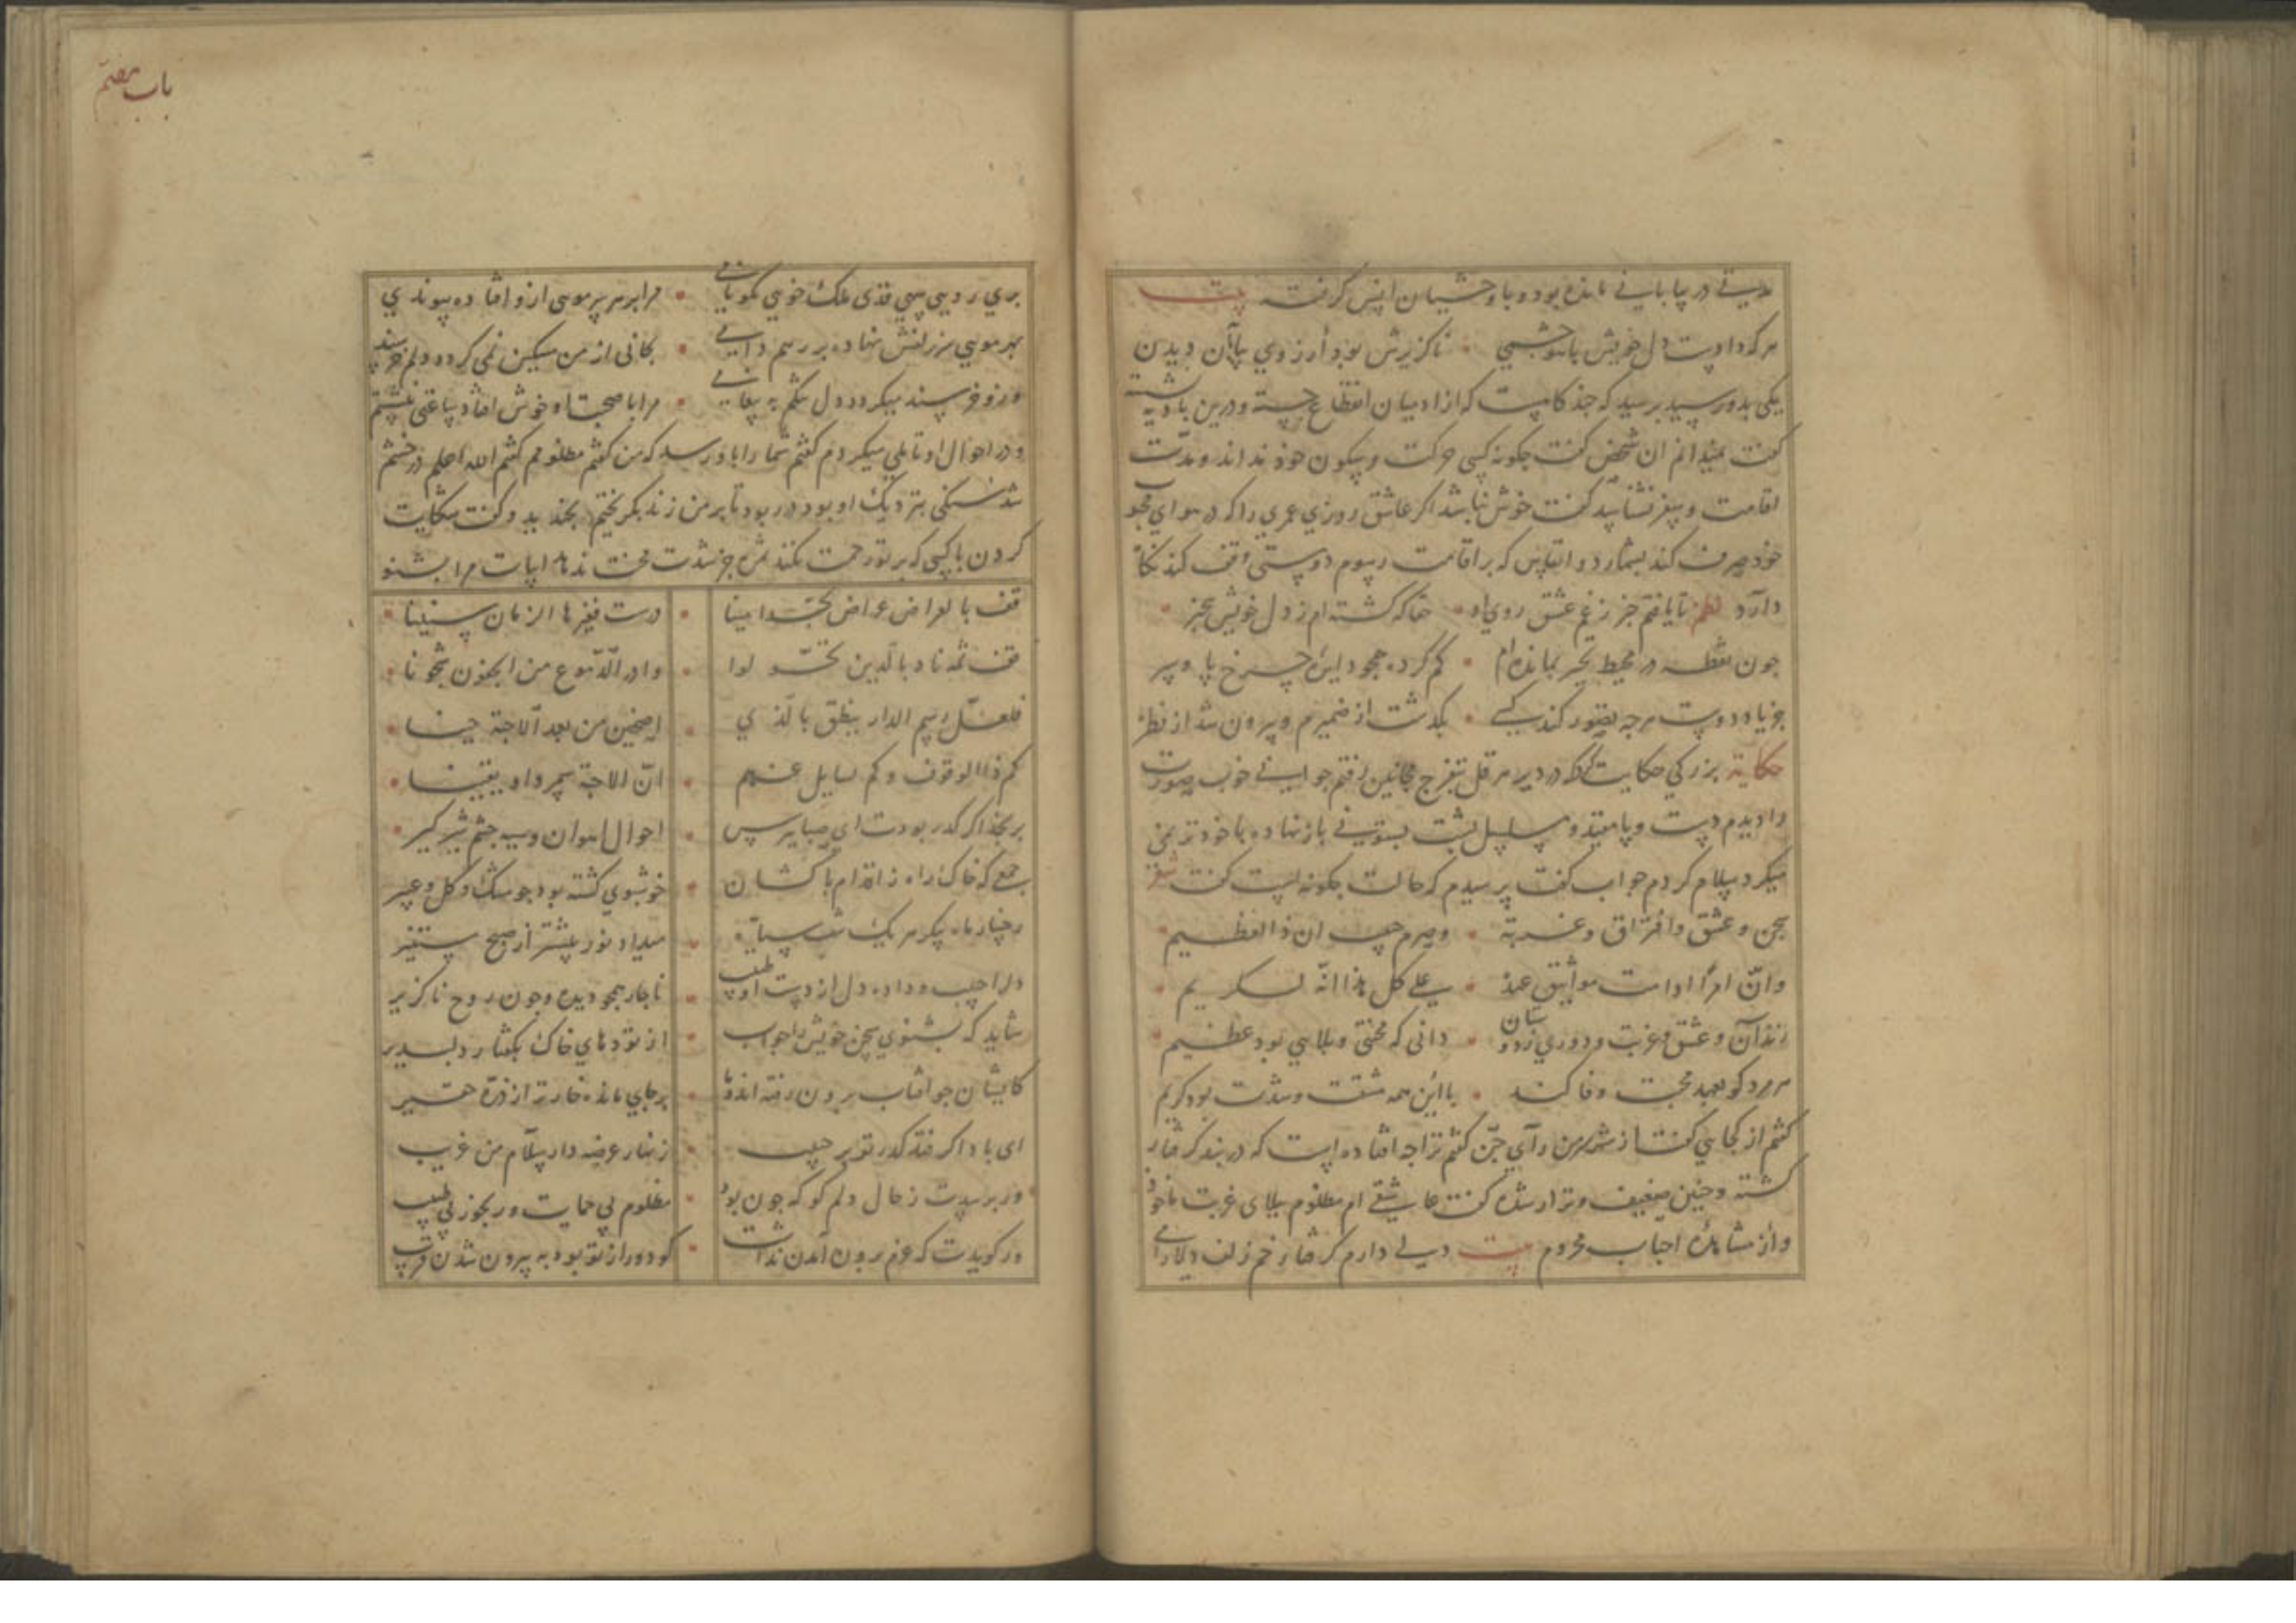 مدتی در بیابانی مانده بود و با وحشیان انس گرفته بیت
هر که را دوست دل خویش باهو چشمی ناگزیرش بود آرزوی بیابان دیدن
یکی بدو رسید پرسید که چند گاهست که از ادمیان انقطاع جسته و درین بادیه
گفت نمیدانم ان شخص گفت چگونه کسی حرکت و سکون خود نداند و مدت
اقامت و سفر نشناسد گفت خوش نباشد اگر عاشق روزی عمری را که در هوای محبوب
خود صرف کند بشمارد و انفاس که بر اقامت رسوم دوستی وقف کند نگاه
دارد نظم تا یافتم خبر ز غم عشق روی او حقا که گشته ام ز دل خویش بیخبر
چون نقطه در محیط تحیر بمانده ام گم کرده همچو دایره چرخ پا و سر
جز یاد دوست هرچه تصور کند کسی بگذشت از ضمیرم و بیرون شد از نظر
حکایة بزرگی حکایت کرد که در دیر هرقل بتفرج مجانین رفتم جوانی خوب صورت
را دیدم دست و پا مقید و سلسل پشت بستونی باز نهاده با خود ترنمی
میکرد سلام کردم جواب گفت پرسیدم که حالت چگونه است گفت شعر
سجن و عشق و افتراق و غربة وصرم حبیب ان ذا لعظیم
وانّ امرأ دامت مواثیق عهده علی کل هذا انّه لکریم
زندان و عشق و غربت و دوری ز دوستان دانی که محنتی و بلایی بود عظیم
هر مرد کو بعهد محبت وفا کند با این همه مشقت و شدت بود کریم
گفتم از کجایی گفت از شهر من رأی گفتم ترا چه افتاده است که در بند گرفتار
گشته و چنین ضعیف و نزار شده گفت عاشقی ام مظلوم ببلای غربت ماخوذ
و از مشاهده احباب محروم بیت دلی دارم گرفتار خم زلف دلارامی
باب هفتم
پری رویی سهی قدی ملک خویی نکونامی مرا بر هر سر مویی ازو افتاده پیوندی
بهر مویی سر زلفش نهاده بر رهم دامی بکانی از من مسکین نمی گردد دلم خرسند
و زو خرسند میگردد دل تنگم به پیغامی مرا با صحبت او خوش افتاد ساعتی بنشستم
و در احوال او تاملی میکردم گفتم شما را باور رسد که من گفتم مظلومم گفتم الله اعلم در خشم
شد سنگی نزدیک او بود در ربود تا بر من زند بگریختم بخندید و گفت شکایت
کردن با کسی که بر تو رحمت نکند ثمره جز شدت محنت ندهد ابیات مرا بشنو
قف بالعراض عراض نجد امینا درست فغیرها الزمان سنینا
قف ثمه ناد بالذین تحمّلوا واذر الدّموع من الجفون شجونا
فلعلّ رسم الدار ینطق بالذی اضحین من بعد الاحبة حینا
کم ذا الوقوف وکم تسایل عنهم انّ الاحبة سمرداو یقینا
بر نجد اگر گذر بودت ای صبا بپرس احوال اهوان سیه چشم شیرگیر
جمعی که خاک راه ز اقدام پاکشان خوشبوی گشته بود چو مشک و گل و عبیر
رخسار ماه پیکر هر یک شب سیاه میداد نور بیشتر از صبح مستنیر
دل را حبیب و داده دل از دست او طبیب ناچار همچو دیده و چون روح ناگزیر
شاید که بشنوی سخن خویش را جواب از توده‌های خاک بگفتار دلپذیر
کایشان چو افتاب برون رفته اند و ما بر جای مانده خوارتر از ذره حقیر
ای باد اگر فتد گذر تو بر حبیب زنهار عرضه دار سلام من غریب
ور پرسدت ز حال دلم گو که چون بود مظلوم بی حمایت و رنجور بی طبیب
ور گویدت که عزم برون آمدن نداشت گو دور از تو بود به بیرون شدن قریب